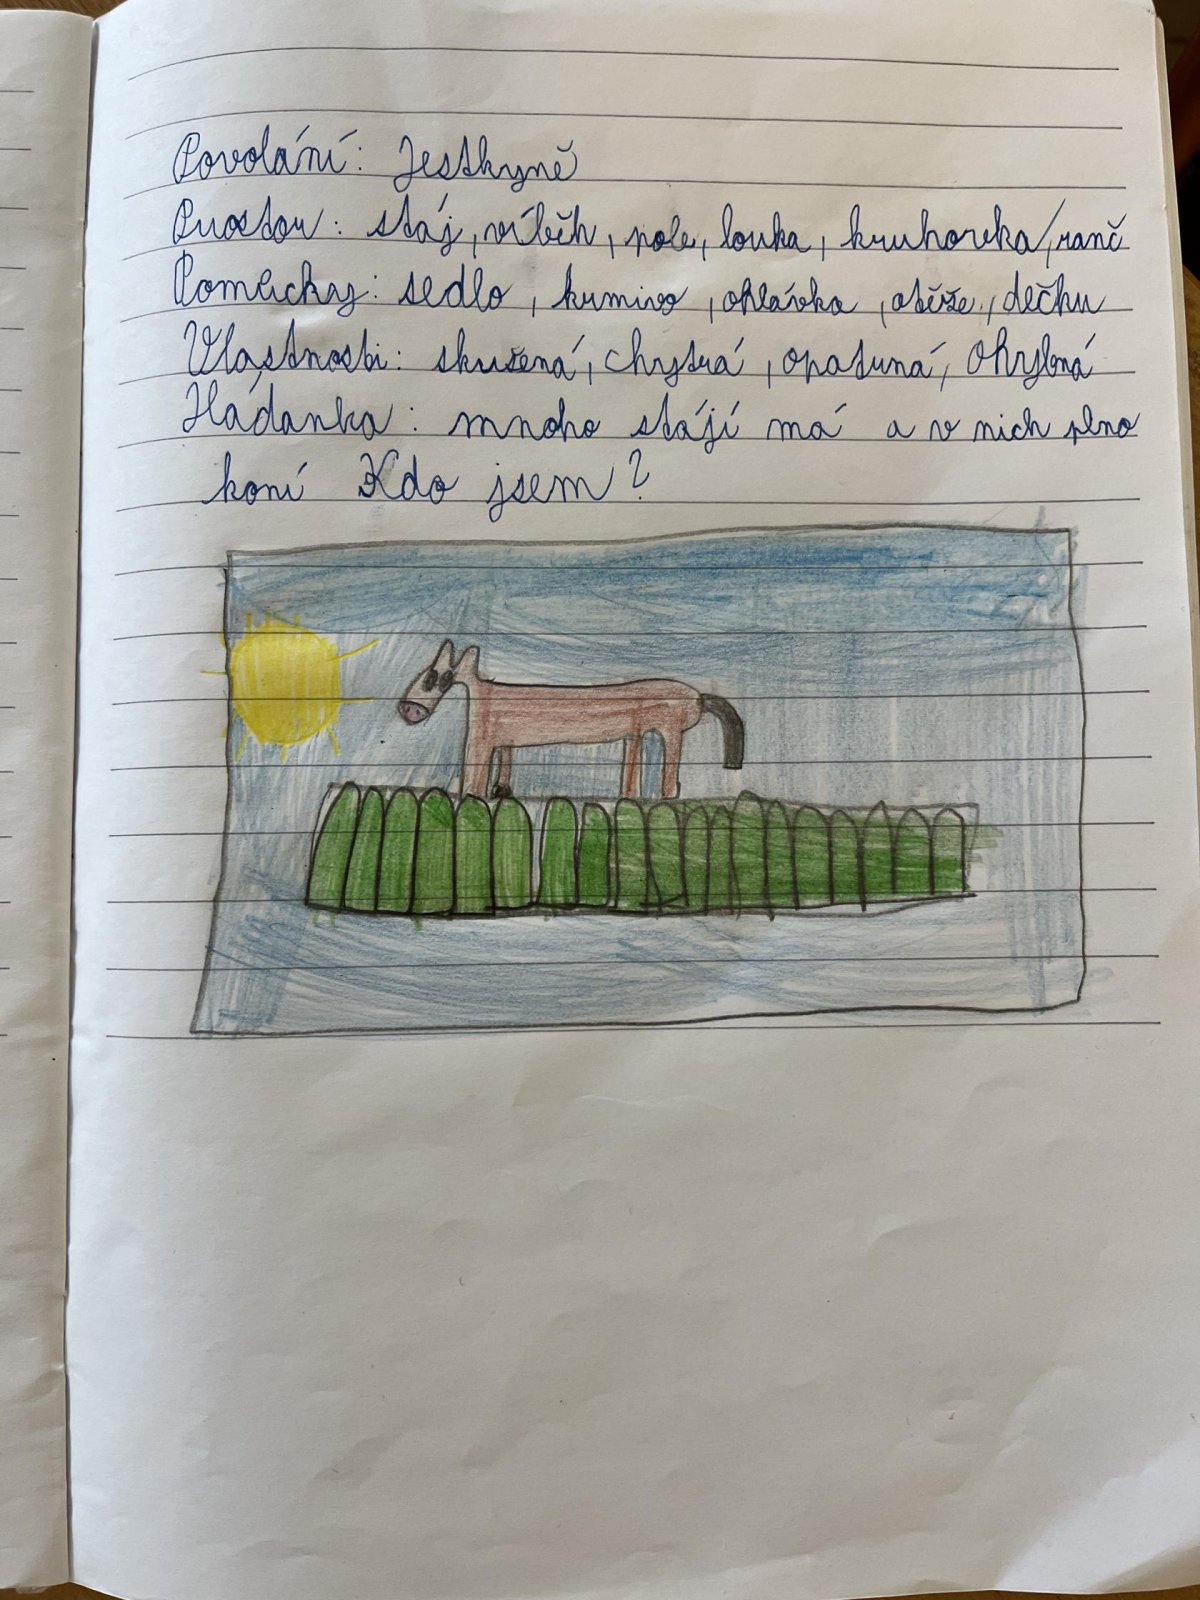 Povolání: Jestkyně
Prostor: stáj, vríběh, pole, louka, kruhovka/ranč
Pomůcky: sedlo, krmivo, ohlávka, otěže, dečku
Vlastnosti: skušená, chytrá, opatrná, Ohybná
Hádanka: mnoho stájí má a v nich plno
koní Kdo jsem?